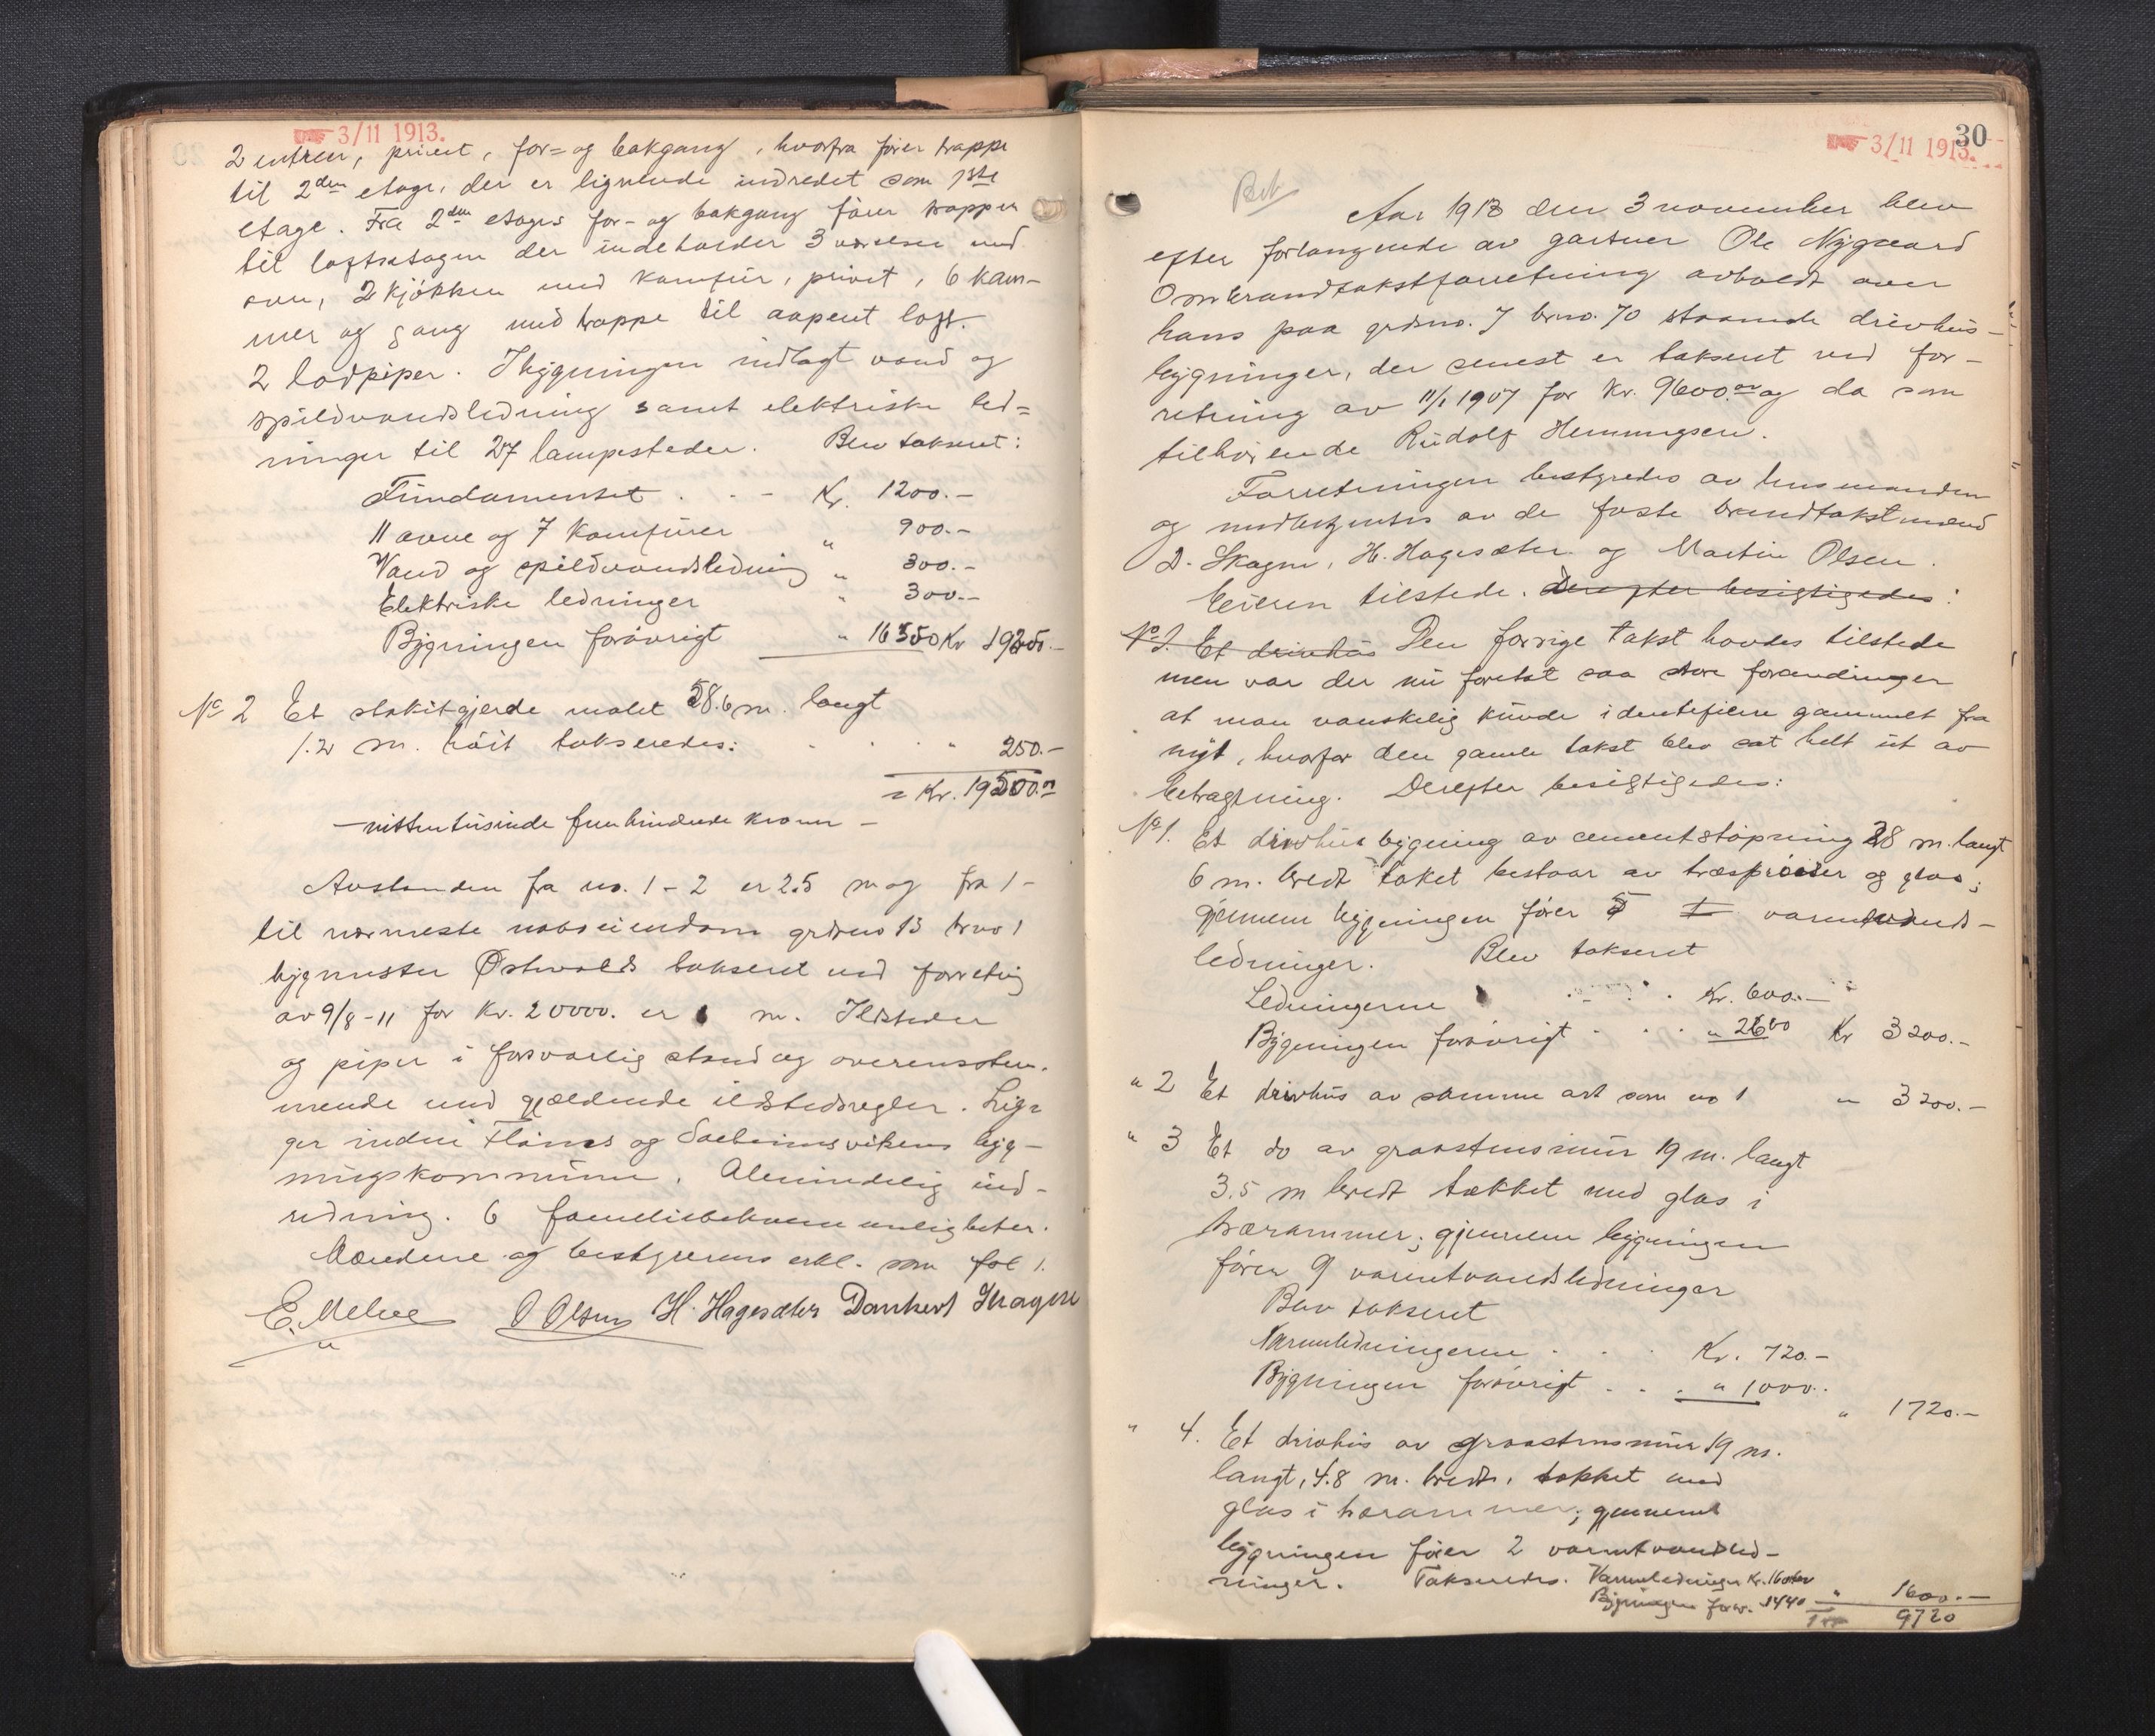 3/11 1913.
2 entreer, privet, for= og bakgang, hvorfra fører trappe
til 2den etage, der er lignende indredet som 1ste
etage. Fra 2den etages for- og bakgang fører trapper
til loftsetagen der indeholder 3 værelser med
ovn, 2 kjøkken med komfur, privet, 6 kam-
mer og gang med trappe til aapent loft.
2 lodpiper. I bygningen indlagt vand og
spildvandsledning samt elektriske led=
ninger til 27 lampesteder. Blev takseret:
Fundamentet . . - Kr. 1200.-
11 ovne og 7 komfurer " 900.-
Vand og spildvandsledning " 300.-
Elektriske ledninger " 300.-
Bygningen forøvrigt " 16550 Kr 19250.-
No 2 Et stakitgjerde malet 58.6 m. langt
1.2 m. høit takseredes: . . . " 250.-
= Kr. 19500.00
- nitten tusinde fem hundrede kroner -
Avstanden fra no. 1 - 2 er 2.5 m og fra 1 -
til nærmeste naboeiendom grdsno 13 brno 1
bygmester Østvolds takseret ved forretnig
av 9/8-11 for Kr. 20000. er m. Ildsteder
og piper i forsvarlig stand og overensstem-
mende med gjældende ildstedsregler. Lig=
ger inden Flonæs og Solheimsvikens byg-
ningskommune. Almindelig ind-
redning. 6 familiebekvemmeligheter.
Mændene og bestyrerens erkl. som fol 1.
E. Melve O Olsen H. Hagesæter Dankert Skagen
30
3/11 1913.
Aar 1913 den 3 november blev
efter forlangende av gartner Ole Nygaard
Ombrandtakstforretning avholdt over
hans paa grdsno. 7 brno. 70 staaende drivhus-
bygninger, der senest er takseret ved for-
retning av 11/1 1907 for Kr. 9600.00 og da som
tilhørende Rudolf Hemmingsen.
Forretningen bestyredes av lensmanden
og medbetjentes av de faste brandtakstmænd
D. Skagen, H. Hagesæter og Martin Olsen.
Eieren tilstede. Derefter besigtigedes:
No 1. Et drivhus Den forrige takst havdes tilstede
men var der nu foretat saa store forandringer
at man vanskelig kunde identifisere gammelt fra
nyt, hvorfor den gamle takst blev sat helt ut av
betragtning. Derefter besigtigedes:
No 1. Et drivhus bygning av cementstøpning 28 m. langt
6 m. bredt taket bestaar av træsprosser og glas;
gjennem bygningen fører 5 varmtvands-
ledninger. Blev takseret
Ledningerne . . . Kr. 600.-
Bygningen forøvrigt . . . " 2600 Kr 3200.-
" 2 Et drivhus av samme art som no 1 " 3200.-
" 3 Et do av graastensmur 19 m. langt
3.5 m bredt tækket med glas i
trærammer; gjennem bygningen
fører 9 varmtvandsledninger
Blev takseret
Varmledningerne . . . Kr. 720.-
Bygningen forøvrigt . . . " 1000.-
" 1720.-
" 4. Et drivhus av graastensmur 19 m.
langt, 4.8 m. bredt, tækket med
glas i trærammer; gjennem
bygningen fører 2 varmtvandsled-
ninger. Takseredes. Varmledninger Kr. 160
Bygningen forøvr. 1440 " 1600.-
9720